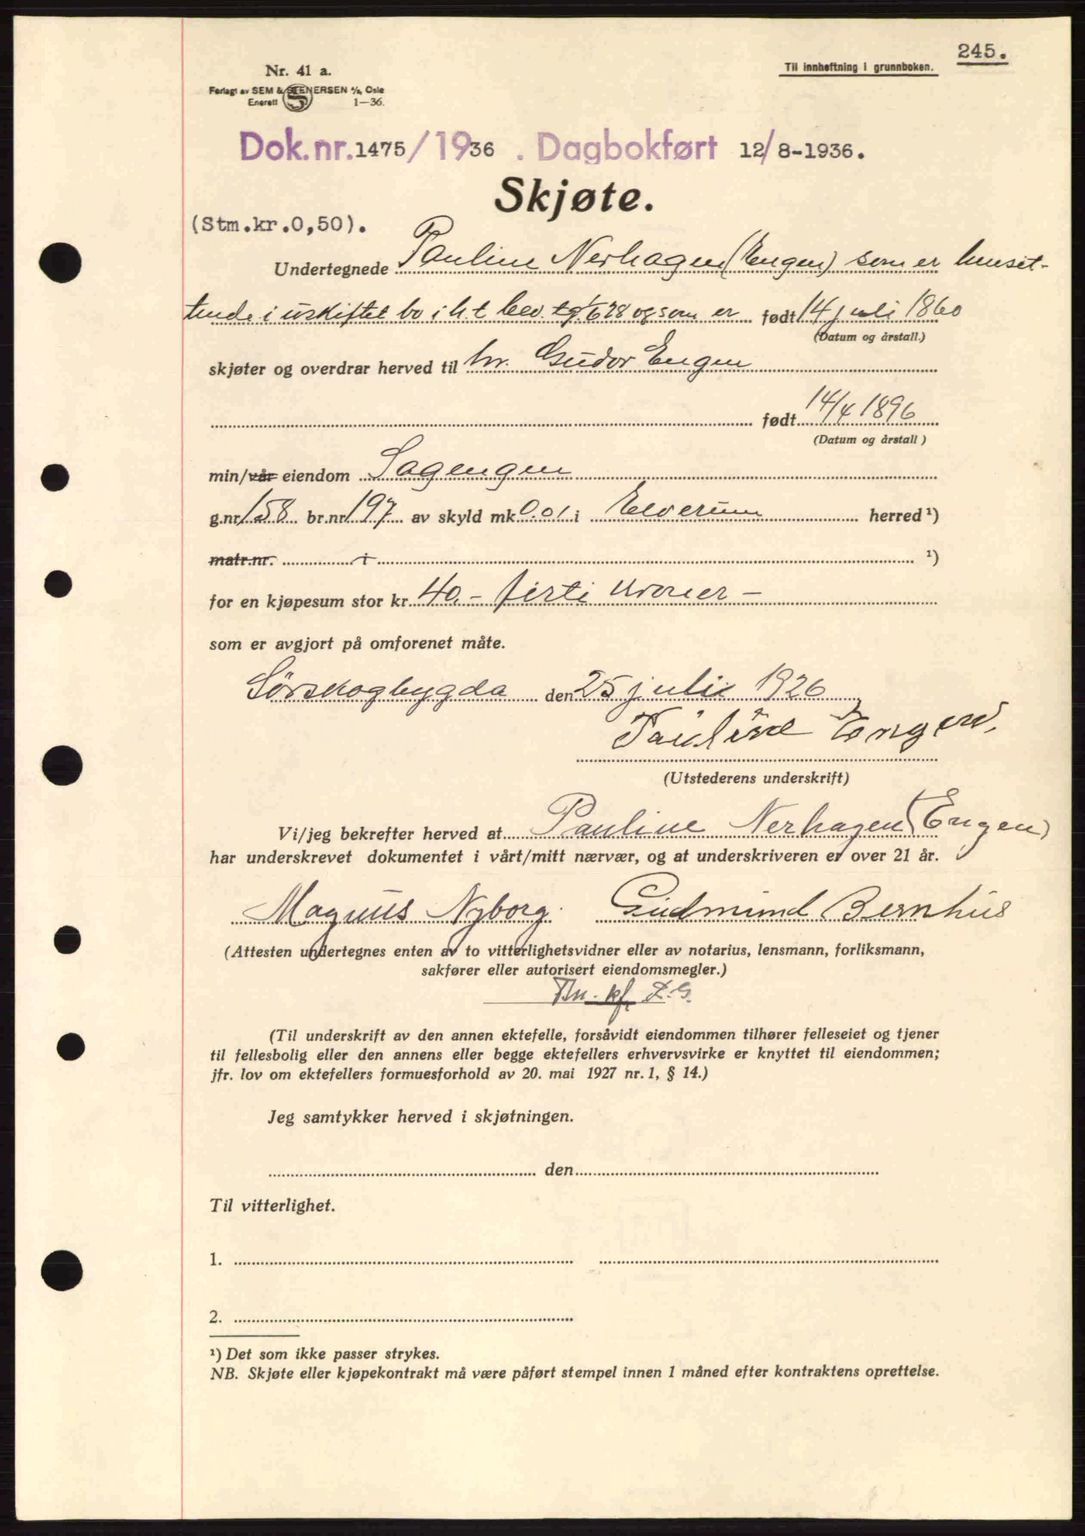 245.
Til innheftning i grunnboken.
Nr. 41 a.
Forlagt av SEM & STENERSEN A/S, Oslo
Enerett 1—36.
Dok.nr. 1475/1936. Dagbokført 12/8-1936.
Skjøte.
(Stm.kr.0,50).
Undertegnede Pauline Nerhagen (Engen) som er hensit-
tende i uskiftet bo i h.t bev. tgl. 628 og som er født 14 juli 1860
(Datum og årstall.)
skjøter og overdrar herved til hr. Gudor Engen
født 14/4 1896
(Datum og årstall)
min/vår eiendom Sagengen
g.nr. 158 br.nr. 197 av skyld mk 0.01 i Elverum herred ¹)
matr.nr. i ¹)
for en kjøpesum stor kr. 40.- firti kroner -
som er avgjort på omforenet måte.
Sørskogbygda den 25 juli 1926
Pauline Engen.
(Utstederens underskrift)
Vi/jeg bekrefter herved at Pauline Nerhagen (Engen)
har underskrevet dokumentet i vårt/mitt nærvær, og at underskriveren er over 21 år.
Magnus Nyborg. Gudmund Bernhus
(Attesten undertegnes enten av to vitterlighetsvidner eller av notarius, lensmann, forliksmann,
sakfører eller autorisert eiendomsmegler.)
kf.
(Til underskrift av den annen ektefelle, forsåvidt eiendommen tilhører felleseiet og tjener
til fellesbolig eller den annens eller begge ektefellers erhvervsvirke er knyttet til eiendommen;
jfr. lov om ektefellers formuesforhold av 20. mai 1927 nr. 1, § 14.)
Jeg samtykker herved i skjøtningen.
den
Til vitterlighet.
1.
2.
¹) Det som ikke passer strykes.
NB. Skjøte eller kjøpekontrakt må være påført stempel innen 1 måned efter kontraktens oprettelse.